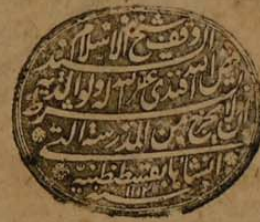 وقف شيخ الاسلام السيد
فيض الله افندى غفر الله له ولوالديه
بشرط ان لا يخرج من المدرسة التى
انشاها بقسطنطنيه
١١١٢